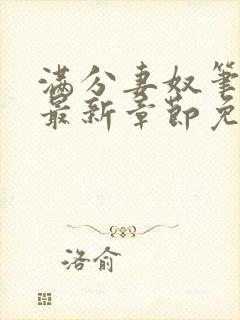 满分妻奴笔
最新章节免
洛俞